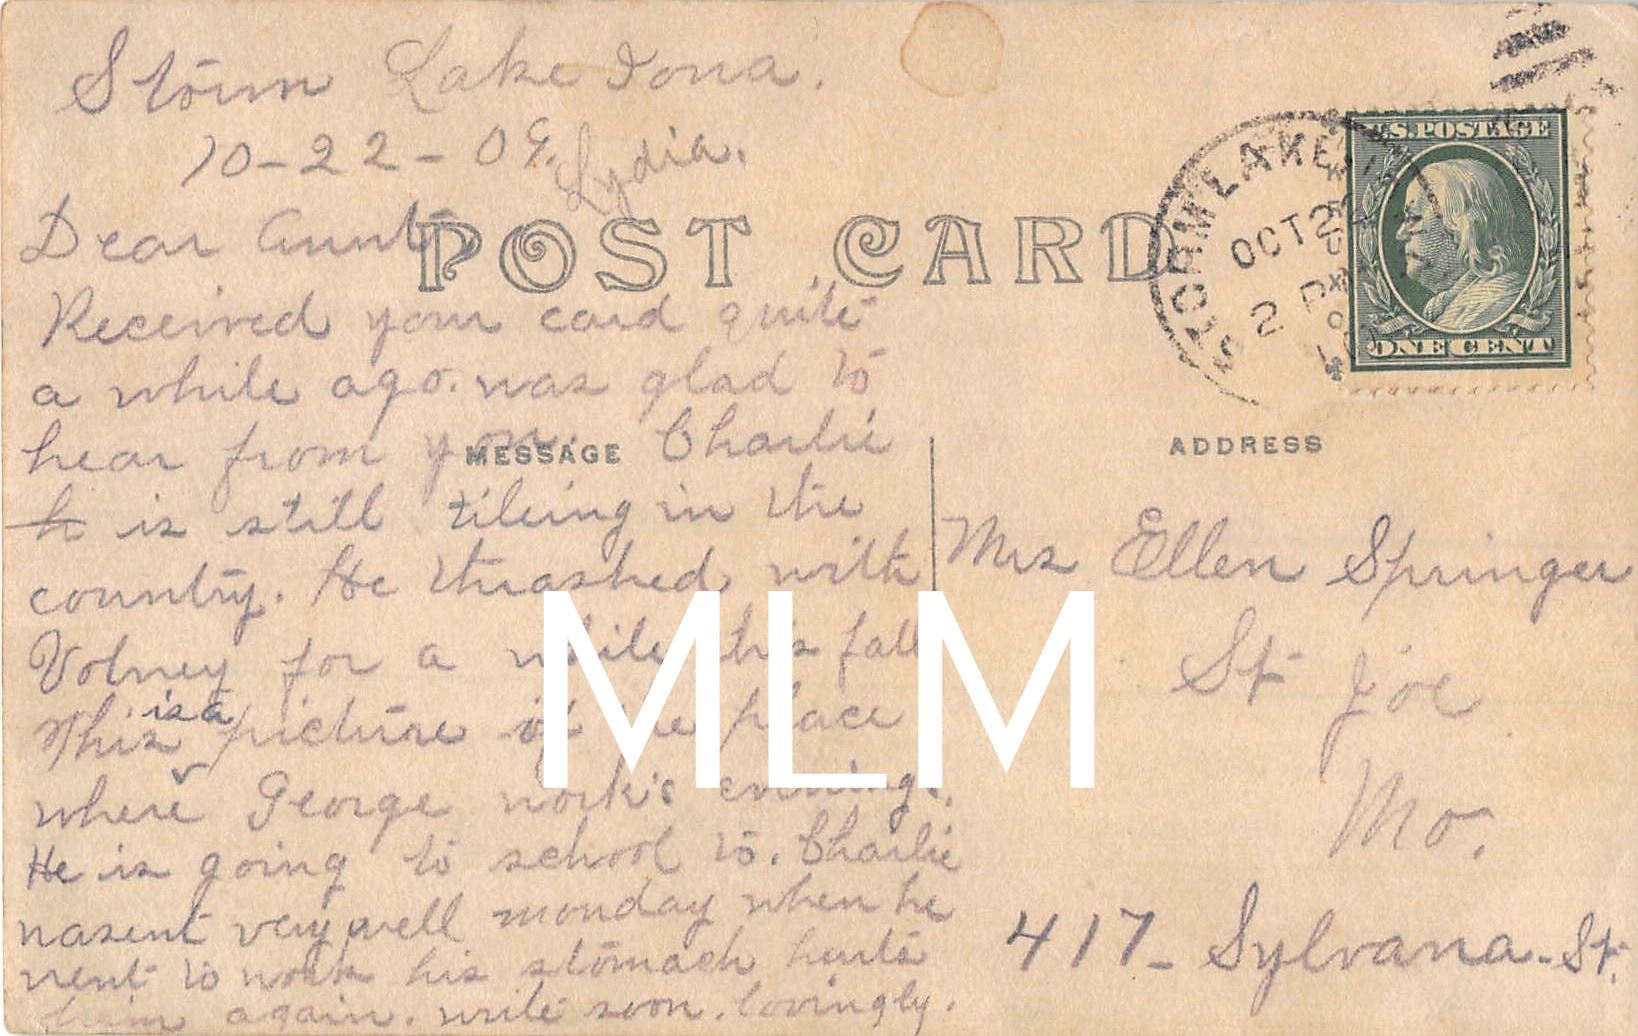 Storm Lake Iowa.
10-22-09.
Lydia.
Dear Aunt,
POST CARD
Received your card quite
a while ago. was glad to
hear from you. Charlie
MESSAGE
h is still tileing in the
country. He thrashed with
Volney for a while this fall
This is a picture of the place
where George work's evenings.
He is going to school to. Charlie
wasent very well monday when he
went to work his stomach hurts
him again. write soon. lovingly.
STORM LAKE
OCT 22
2 PM
U.S. POSTAGE
ONE CENT
ADDRESS
Mrs Ellen Springer
St Joe
Mo.
417 - Sylvana - St.
MLM